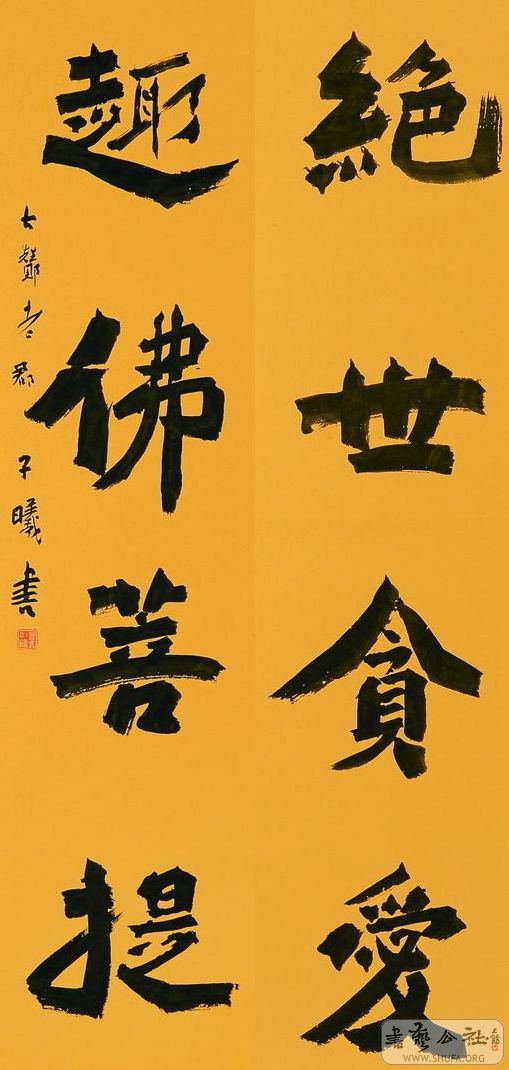 絶世貪愛
趣佛菩提
子曦書
書藝公社
WWW.SHUFA.ORG